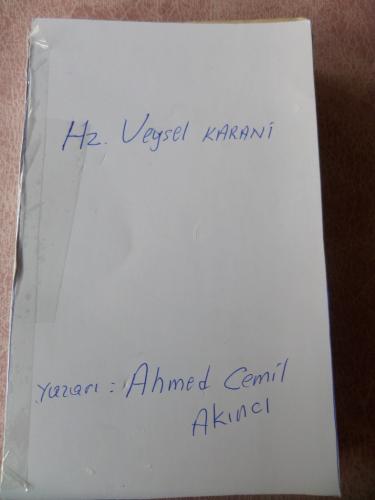 Hz. Veysel KARANİ
Yazarı : Ahmed Cemil
Akıncı